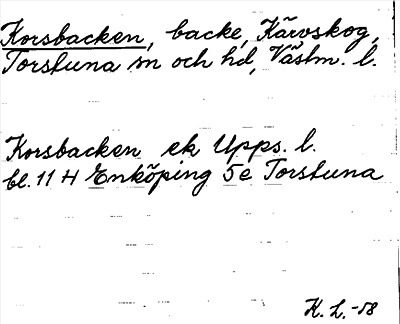 Korsbacken, backe, Kärvskog,
Torstuna sn och hd, Västm. l.
Korsbacken ek Upps. l.
bl. 11 H Enköping 5e Torstuna
K. L. -58